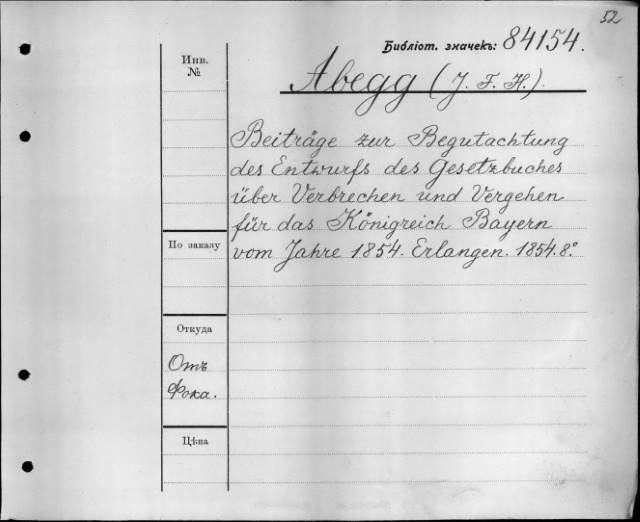 52
Библіот. значекъ: 84154.
Инв.
№
Abegg (J. F. H.).
Beiträge zur Begutachtung
des Entwurfs des Gesetzbuches
über Verbrechen und Vergehen
für das Königreich Bayern
По заказу
vom Jahre 1854. Erlangen. 1854. 8.°
Откуда
Отъ
Фока.
Цѣна